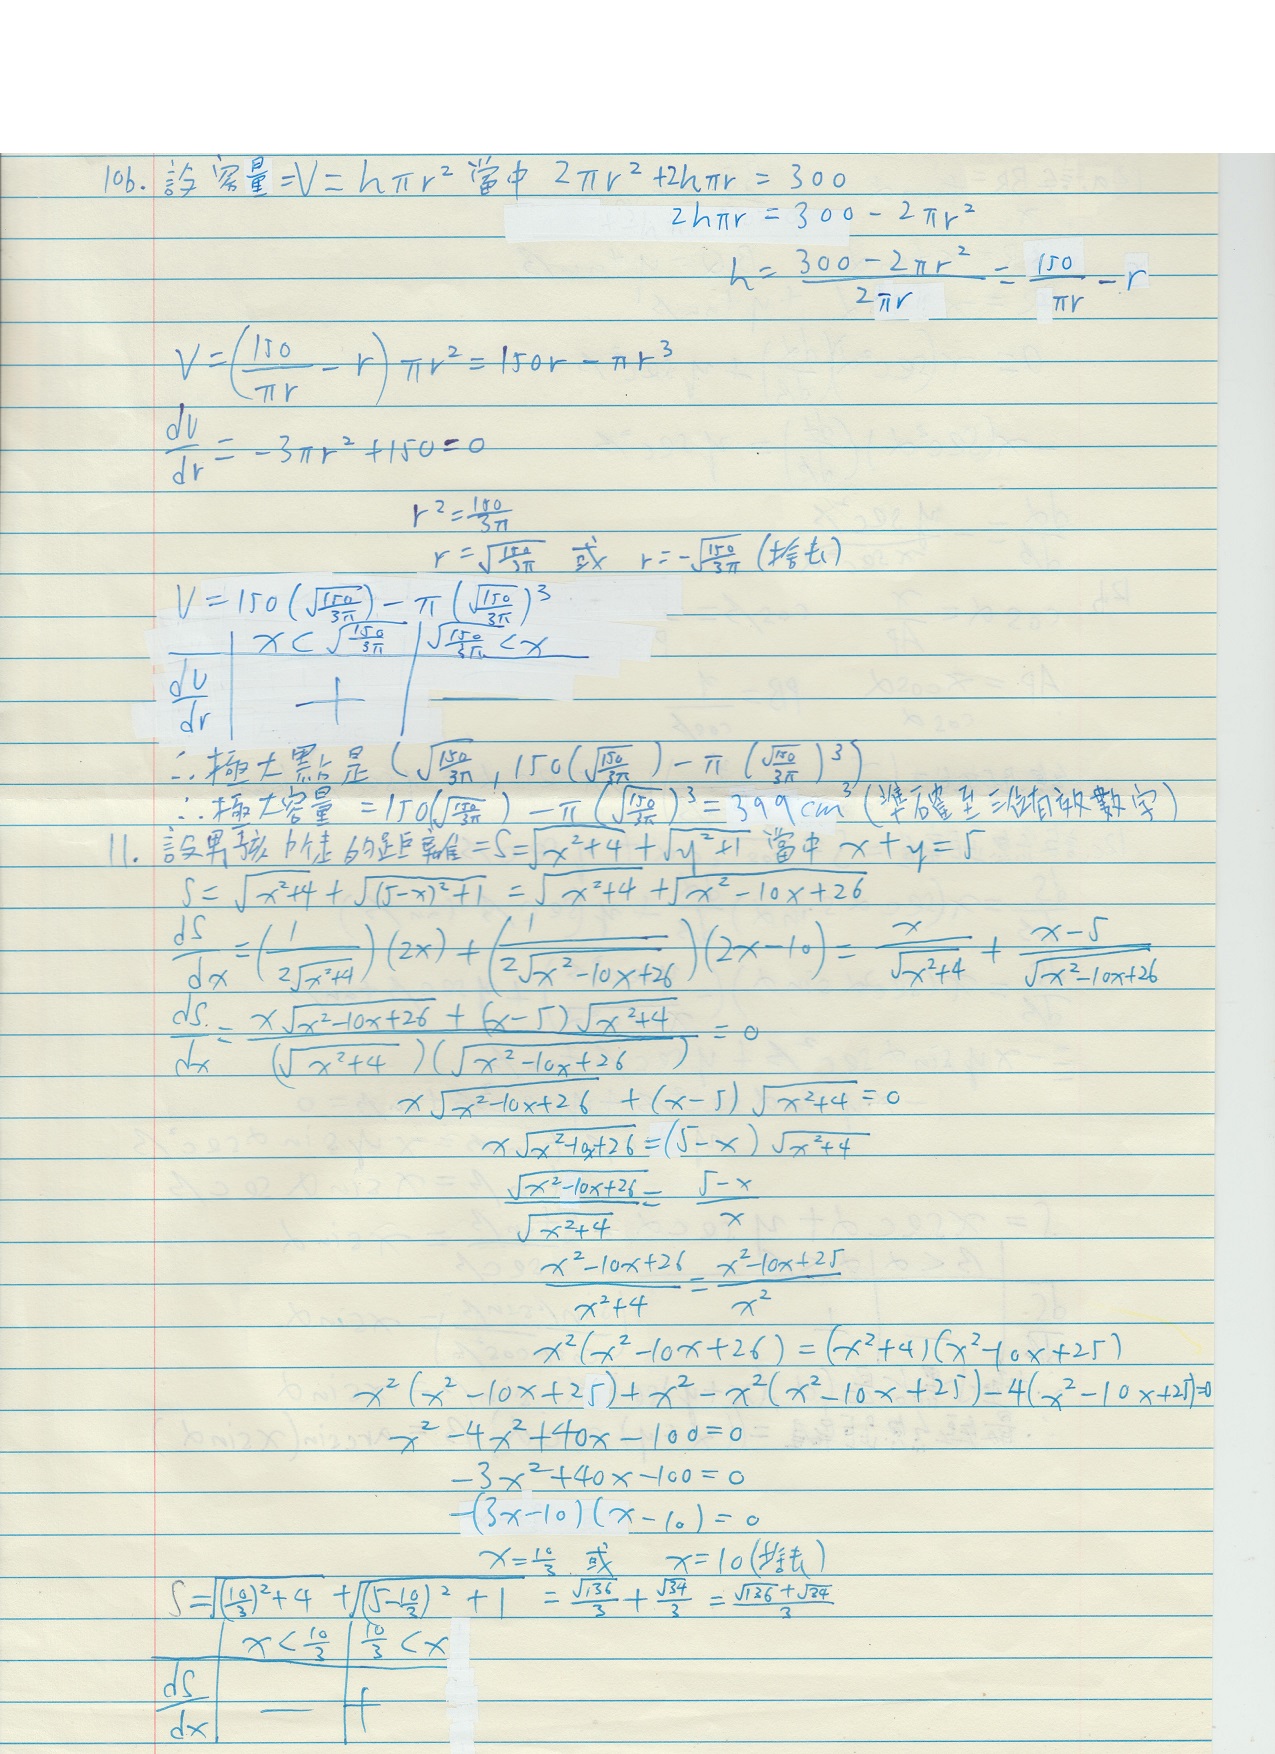 10b. 設容量=V=hπr² 當中 2πr²+2hπr = 300
2hπr = 300 - 2πr²
h = (300-2πr²)/(2πr) = 150/(πr) - r
V = (150/(πr) - r) πr² = 150r - πr³
dV/dr = -3πr²+150 = 0
r² = 150/3π
r = √(150/3π) 或 r = -√(150/3π) (捨去)
V = 150(√(150/3π)) - π(√(150/3π))³
x < √(150/3π) | √(150/3π) < x
dV/dr | + | —
∴極大點是 (√(150/3π), 150(√(150/3π)) - π(√(150/3π))³)
∴極大容量 = 150(√(150/3π)) - π(√(150/3π))³ = 399cm³ (準確至三位有效數字)
11. 設男孩所走的距離=S=√(x²+4)+√(y²+1) 當中 x+y=5
S = √(x²+4)+√((5-x)²+1) = √(x²+4)+√(x²-10x+26)
dS/dx = (1/(2√(x²+4)))(2x) + (1/(2√(x²-10x+26)))(2x-10) = x/√(x²+4) + (x-5)/√(x²-10x+26)
dS/dx = (x√(x²-10x+26) + (x-5)√(x²+4))/((√(x²+4))(√(x²-10x+26))) = 0
x√(x²-10x+26) + (x-5)√(x²+4) = 0
x√(x²-10x+26) = (5-x)√(x²+4)
√(x²-10x+26)/√(x²+4) = (5-x)/x
(x²-10x+26)/(x²+4) = (x²-10x+25)/x²
x²(x²-10x+26) = (x²+4)(x²-10x+25)
x²(x²-10x+25)+x²-x²(x²-10x+25)-4(x²-10x+25)=0
x²-4x²+40x-100=0
-3x²+40x-100=0
-(3x-10)(x-10)=0
x=10/3 或 x=10(捨去)
S=√((10/3)²+4)+√((5-10/3)²+1) = √136/3 + √34/3 = (√136+√34)/3
x < 10/3 | 10/3 < x
dS/dx | — | +